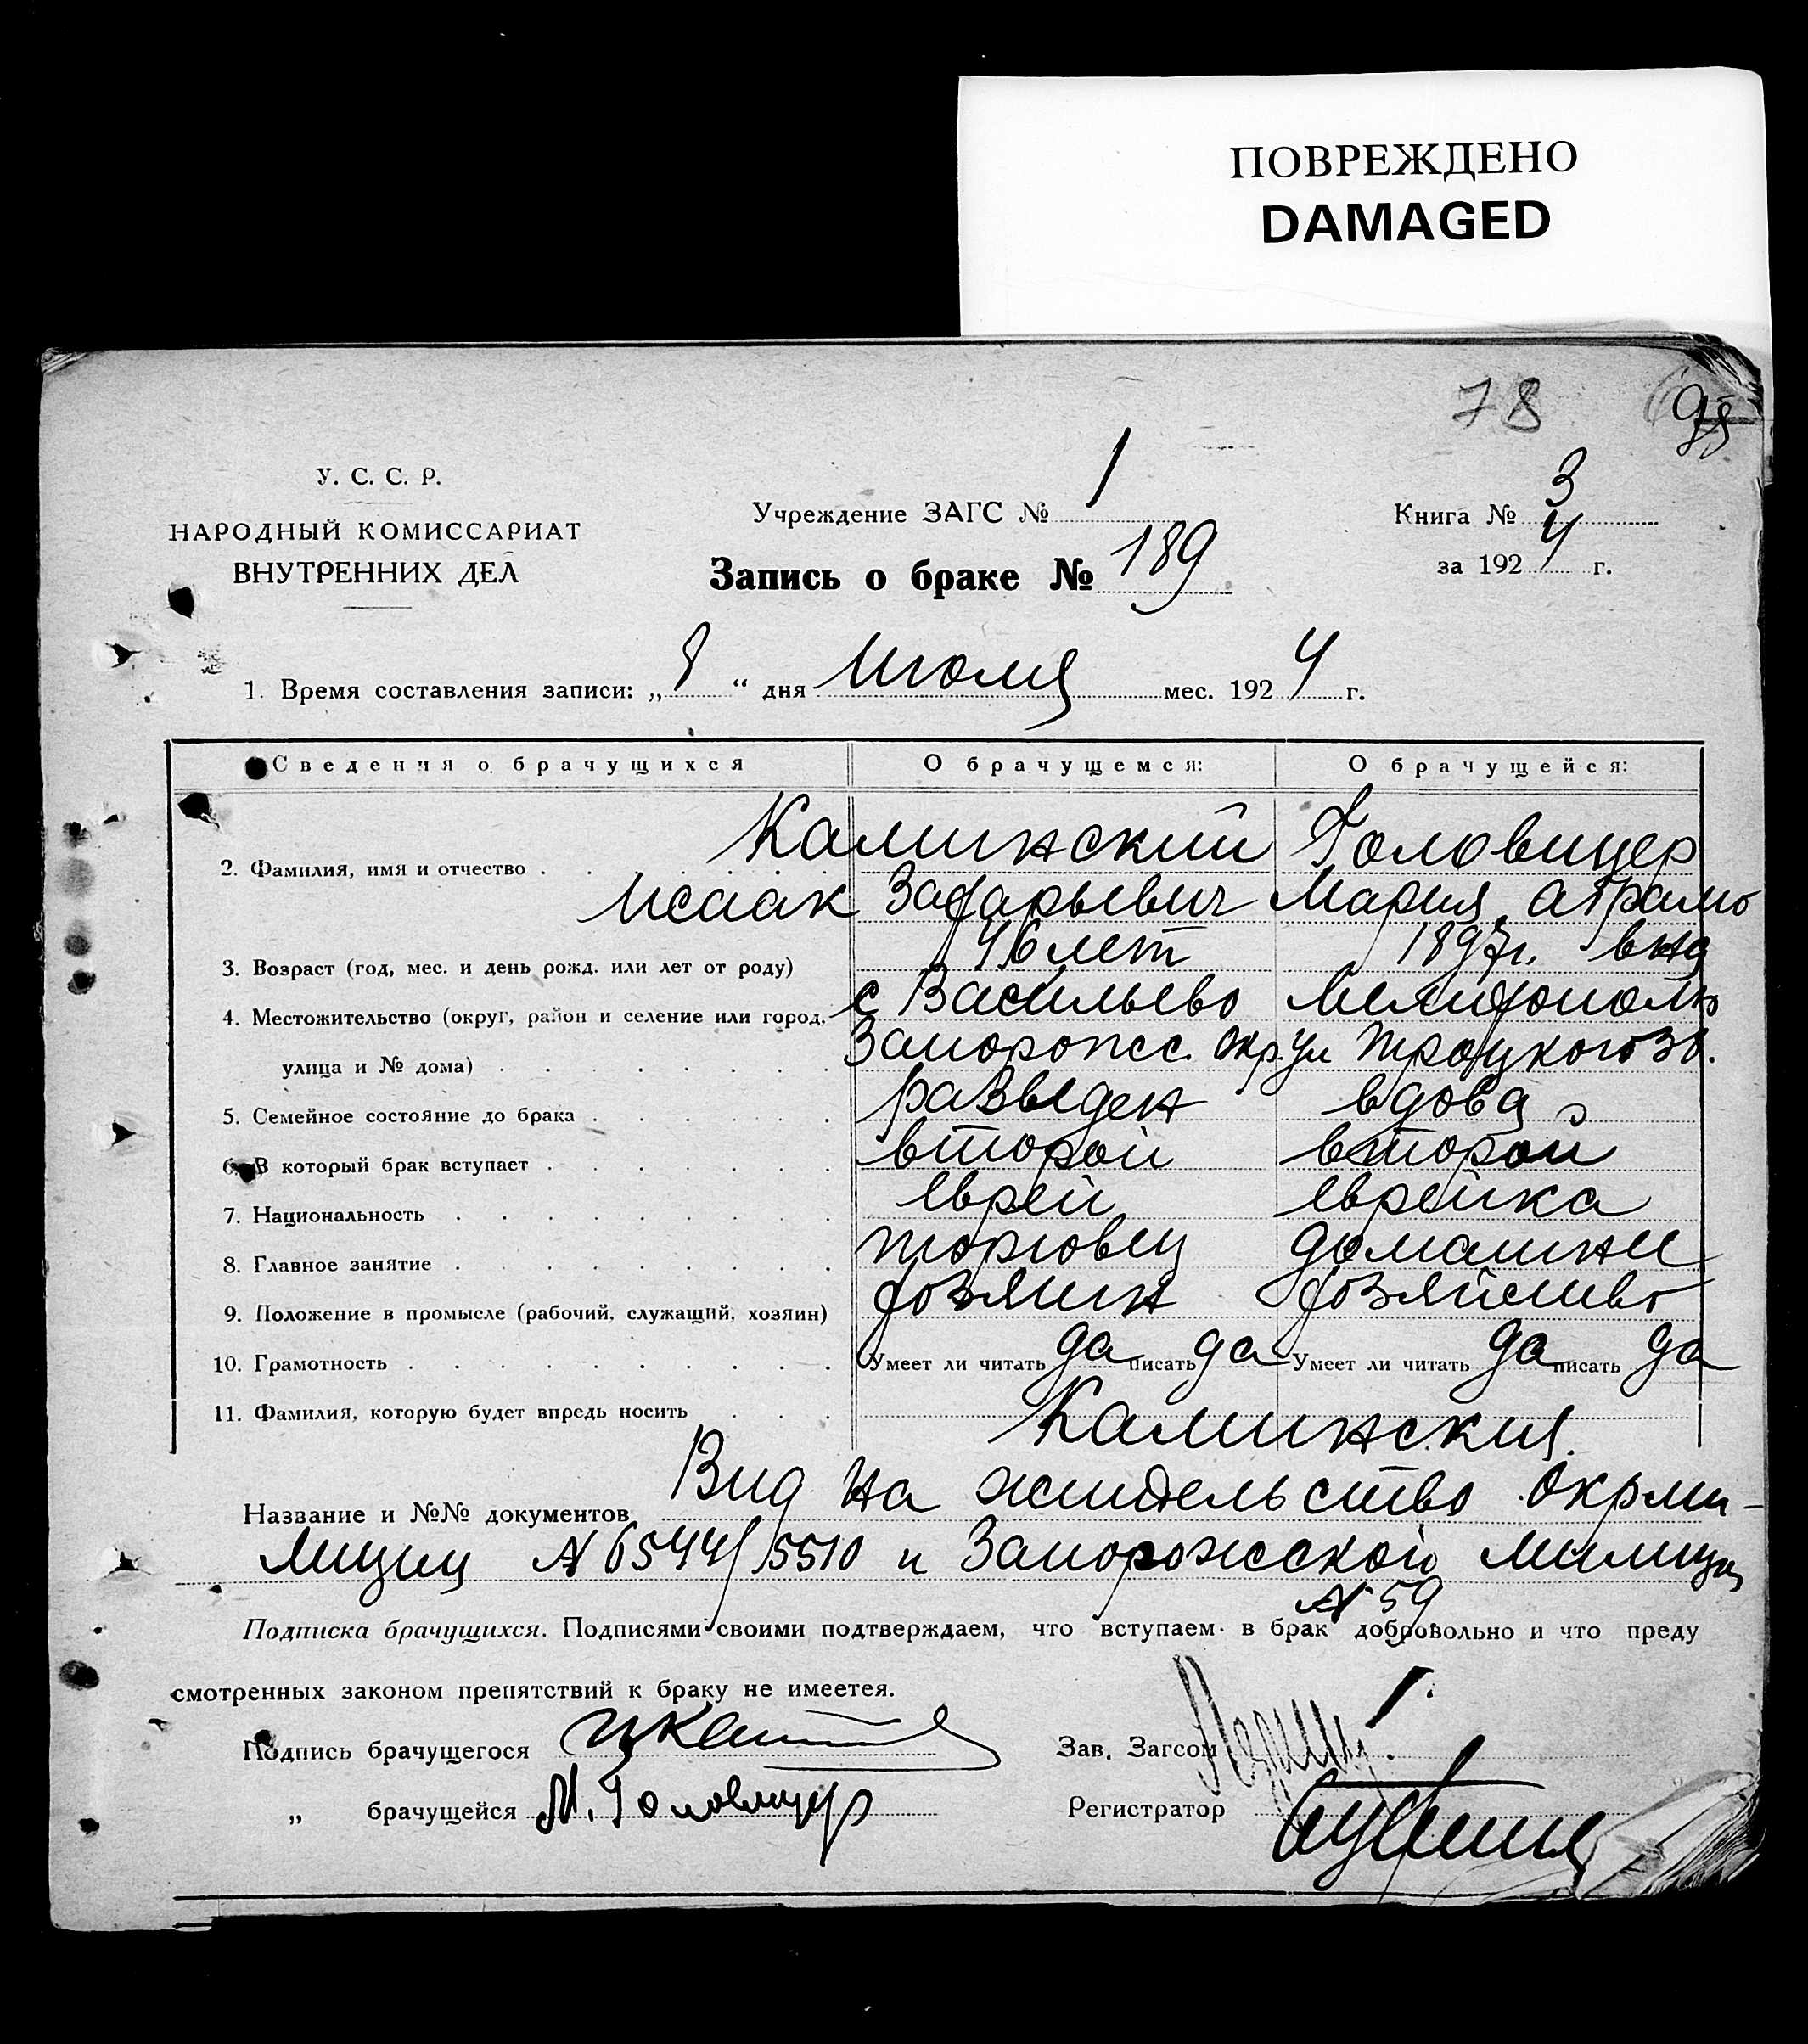 ПОВРЕЖДЕНО
DAMAGED
78
У. С. С. Р.
НАРОДНЫЙ КОМИССАРИАТ
ВНУТРЕННИХ ДЕЛ
Учреждение ЗАГС № 1
Запись о браке № 189
Книга № 3
за 1924 г.
1. Время составления записи: „8“ дня Июля мес. 1924 г.
Сведения о брачущихся О брачущемся: О брачущейся:
2. Фамилия, имя и отчество Калинский Головицер
Исаак Захарьевич Мария Абрамо
вна
3. Возраст (год, мес. и день рожд. или лет от роду) 46 лет 1897г.
4. Местожительство (округ, район и селение или город, с Васильево Мелитополь
улица и № дома) Запорожс. окр. ул Троцкого 30.
5. Семейное состояние до брака разведен вдова
6. В который брак вступает второй второй
7. Национальность еврей еврейка
8. Главное занятие торговец домашнее
9. Положение в промысле (рабочий, служащий, хозяин) хозяин хозяйство
10. Грамотность Умеет ли читать да писать да Умеет ли читать да писать да
11. Фамилия, которую будет впредь носить Калинския.
Название и №№ документов Вид на жительство Окрми-
лиции № 6544/5510 и Запорожской милиции
№ 59
Подписка брачущихся. Подписями своими подтверждаем, что вступаем в брак добровольно и что преду
смотренных законом препятствий к браку не имеетея.
Подпись брачущегося
Зав. Загсом
„ брачущейся М. Головицер
Регистратор